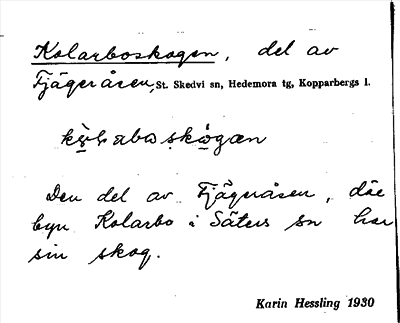 Kolarboskogen, del av
Fjägeråsen, St. Skedvi sn, Hedemora tg, Kopparbergs l.
Den del av Fjägeråsen, där
byn Kolarbo i Säters sn har
sin skog.
Karin Hessling 1930